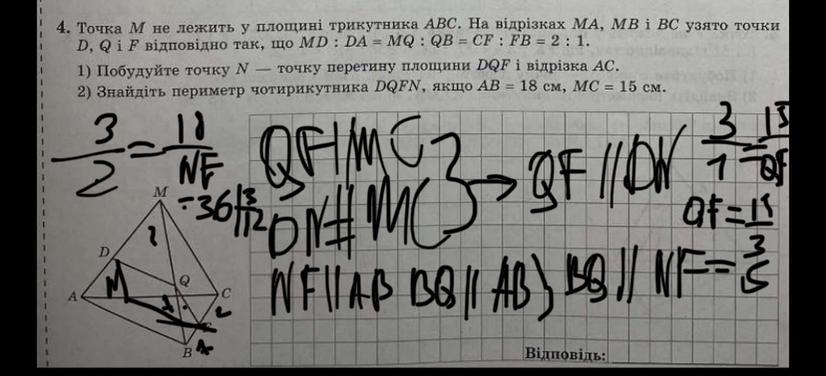 4. Точка M не лежить у площині трикутника ABC. На відрізках MA, MB і BC узято точки
D, Q і F відповідно так, що MD : DA = MQ : QB = CF : FB = 2 : 1.
1) Побудуйте точку N — точку перетину площини DQF і відрізка AC.
2) Знайдіть периметр чотирикутника DQFN, якщо AB = 18 см, MC = 15 см.
3/2 = 18/NF
= 36 | 3
12
QF || MC
DN || MC } → QF // DN
3/1 = 15/QF
QF = 15/3
= 5
NF || AB BQ || AB } BQ // NF
M
D
Q
A
C
B
Відповідь: